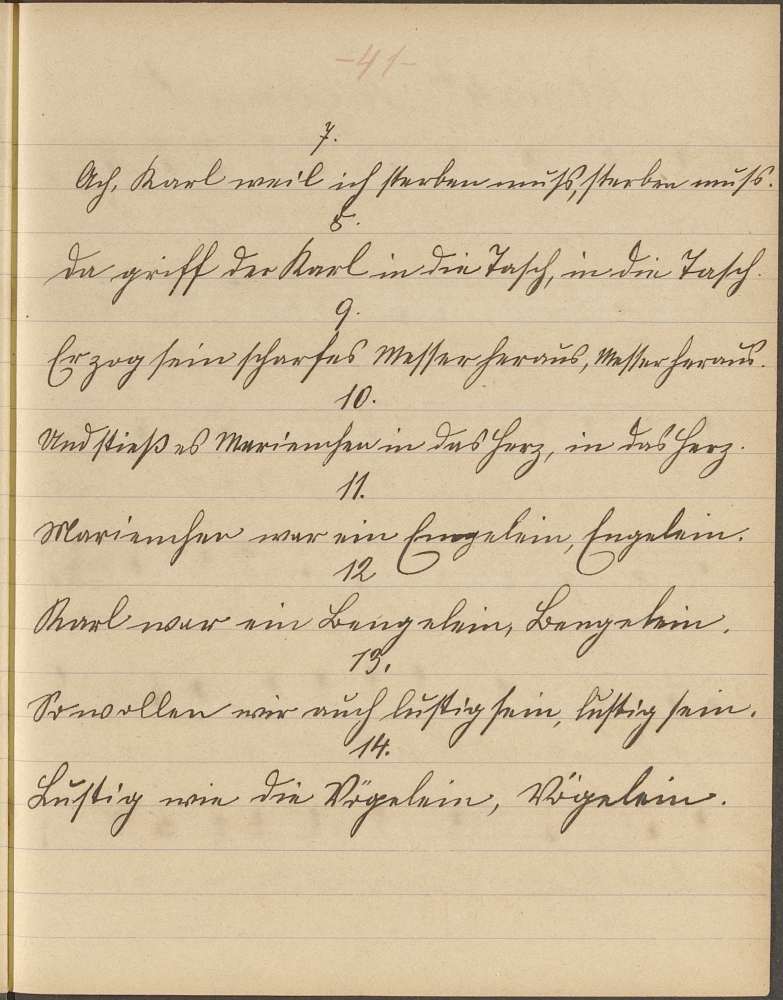 -41-
7.
Ach, Karl weil ich sterben muß, sterben muß.
8.
Da griff der Karl in die Tasch, in die Tasch.
9.
Er zog sein scharfes Messer heraus, Messer heraus.
10.
Und stieß es Marienchen in das Herz, in das Herz.
11.
Marienchen war ein Engelein, Engelein.
12
Karl war ein Bengelein, Bengelein.
13.
So wollen wir auch lustig sein, lustig sein.
14.
Lustig wie die Vögelein, Vögelein.